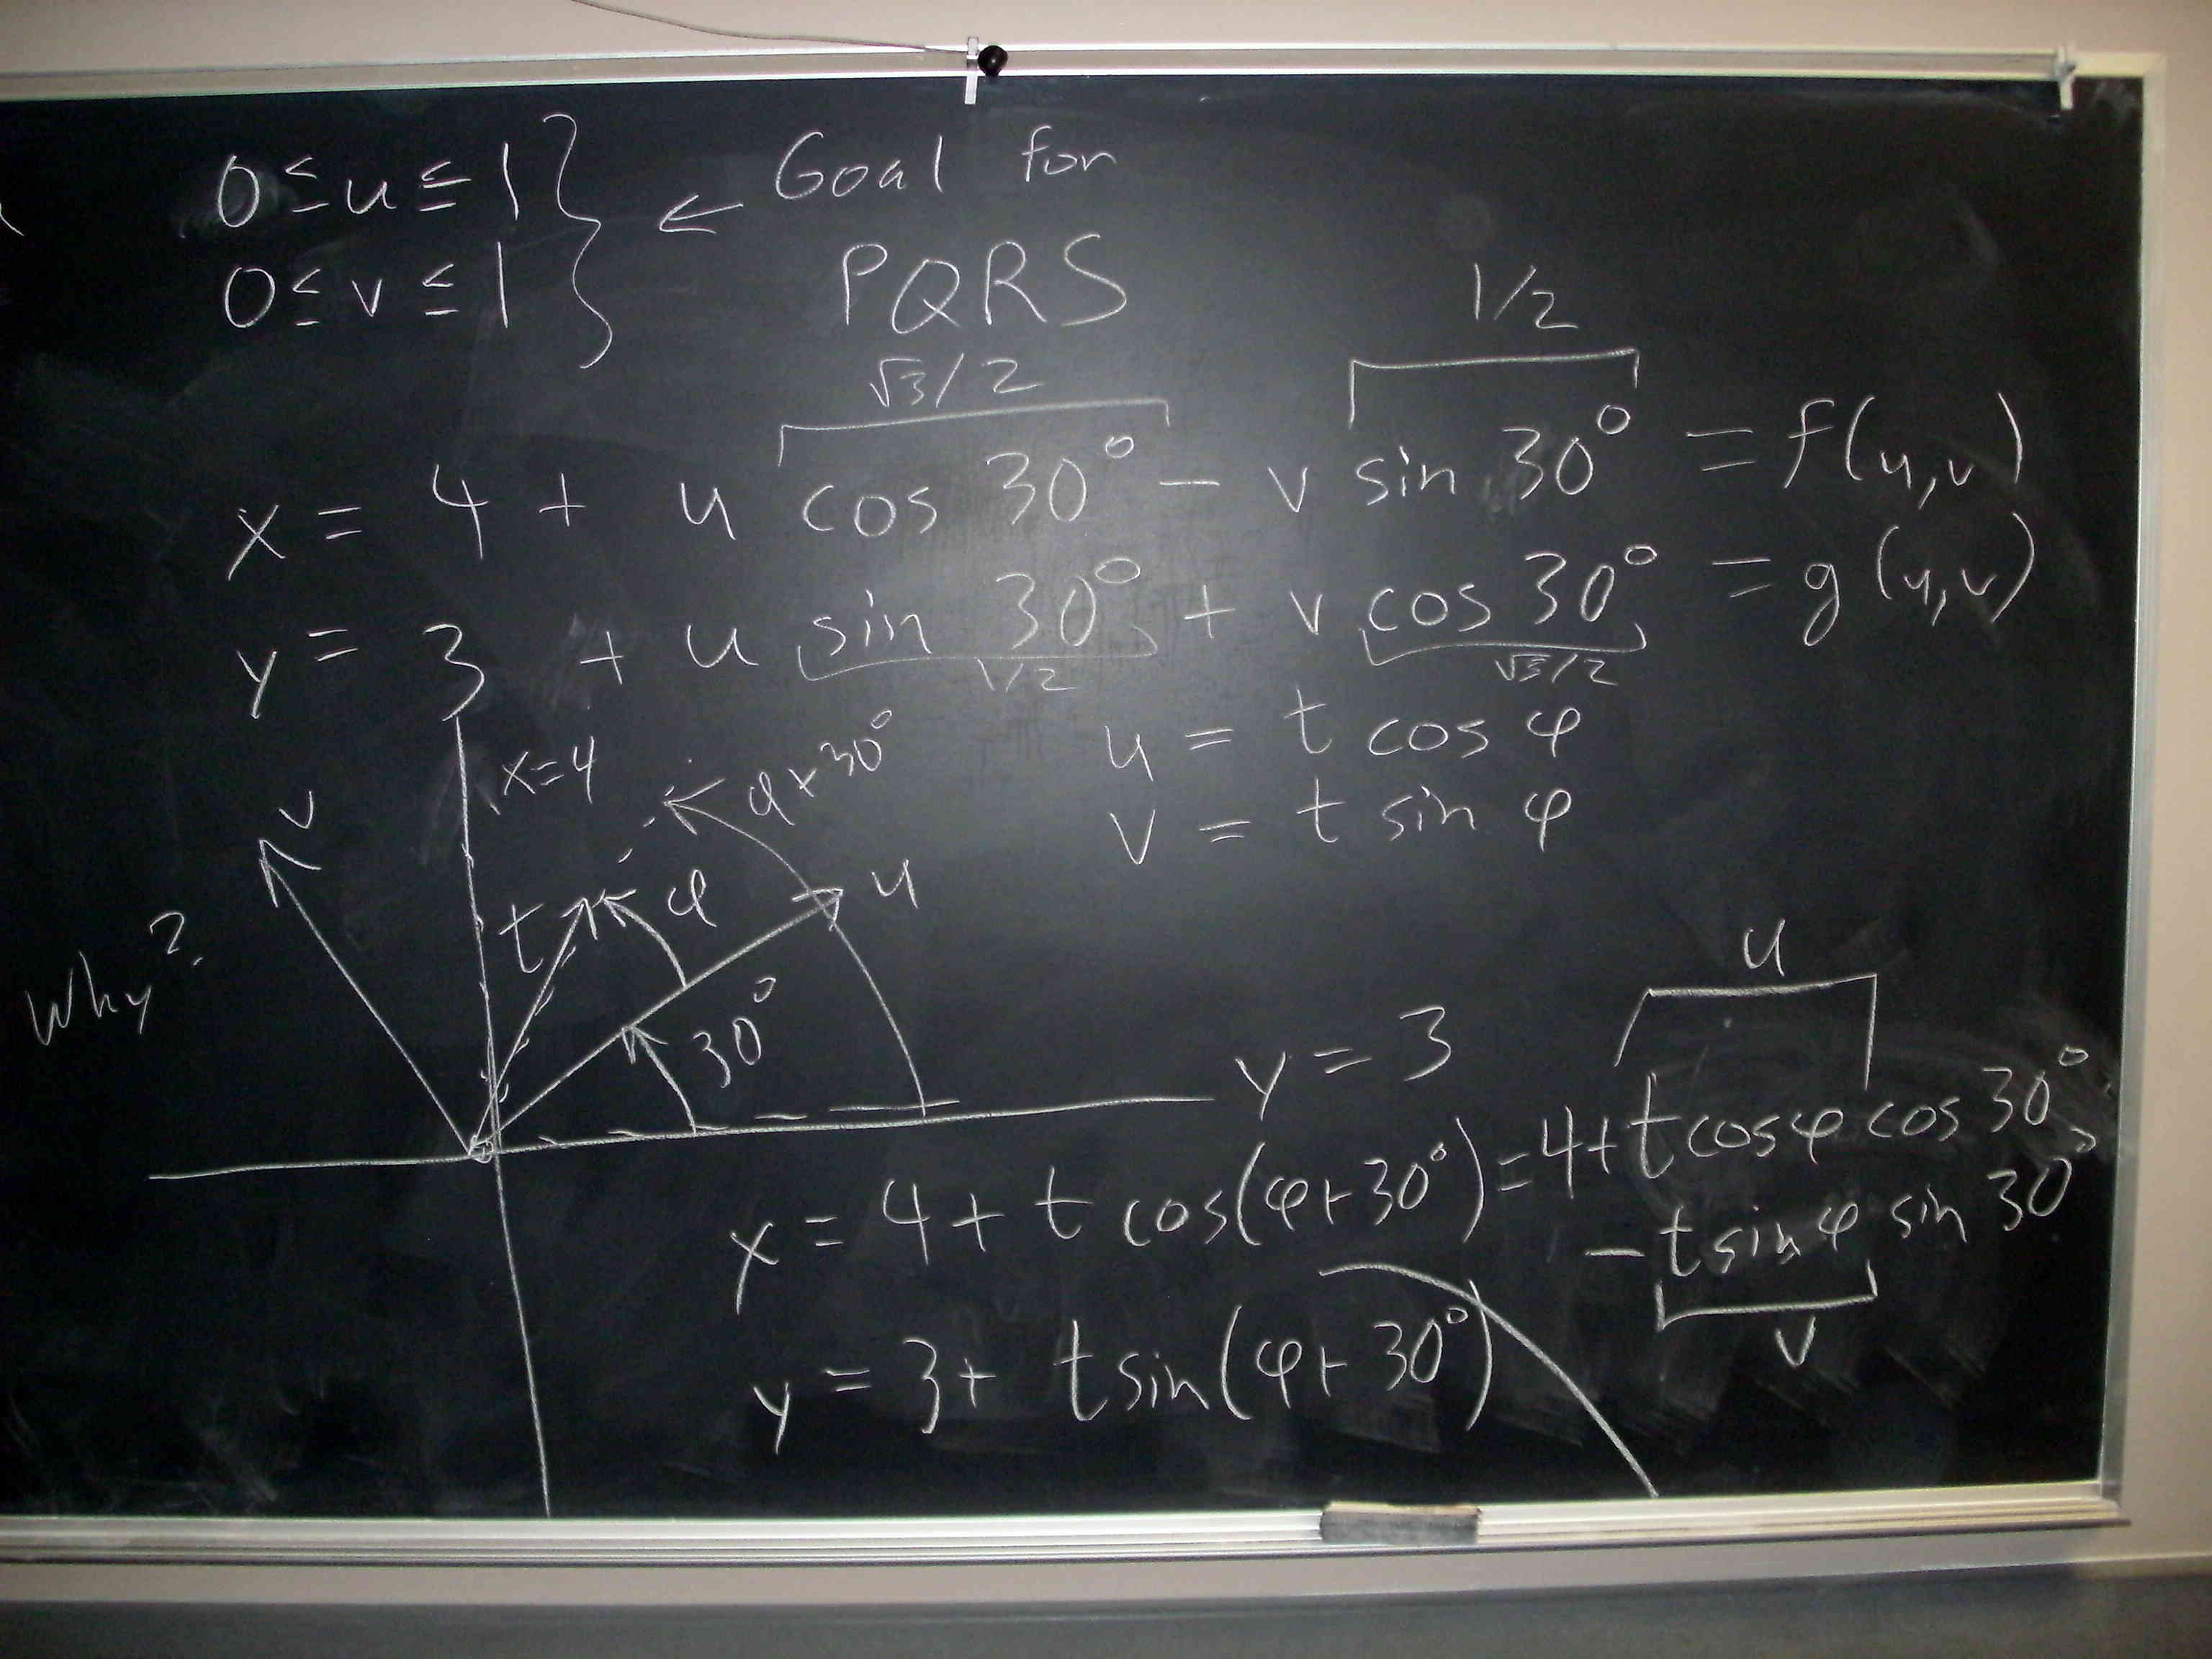 0 ≤ u ≤ 1 } ← Goal for
0 ≤ v ≤ 1 } PQRS
√3/2 1/2
x = 4 + u cos 30° - v sin 30° = f(u,v)
y = 3 + u sin 30° + v cos 30° = g(u,v)
1/2 √3/2
u = t cos φ
v = t sin φ
x=4
φ+30°
v
t
φ
u
Why?
30°
y = 3
u
x = 4 + t cos(φ+30°) = 4+t cosφ cos 30°
- t sin φ sin 30°
v
y = 3+ t sin(φ+30°)